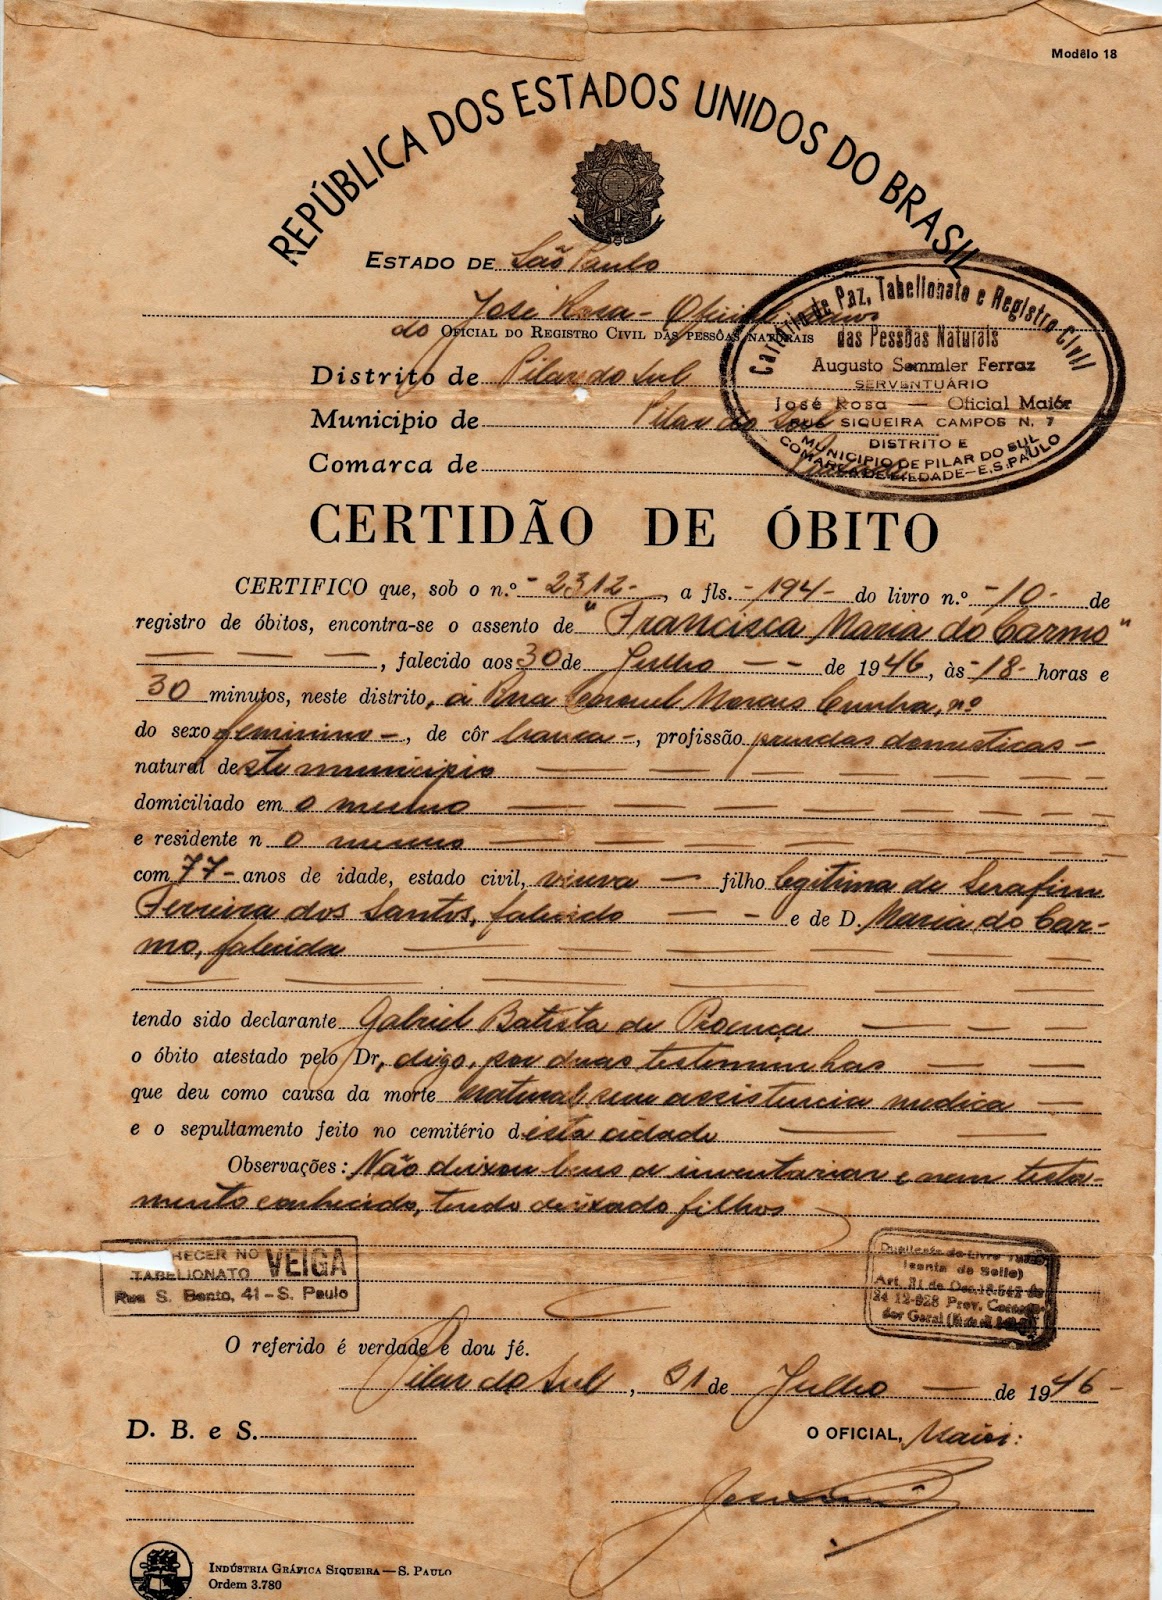 Modêlo 18
REPÚBLICA DOS ESTADOS UNIDOS DO BRASIL
ESTADO DE São Paulo
José Rosa - Oficial
do OFICIAL DO REGISTRO CIVIL DAS PESSÔAS NATURAIS
Distrito de Pilar do Sul
Município de Pilar do Sul
Comarca de Piedade
Cartório de Paz, Tabellionato e Registro Civil
das Pessôas Naturais
Augusto Sammler Ferraz
SERVENTUÁRIO
José Rosa — Oficial Maiór
RUA SIQUEIRA CAMPOS N. 7
DISTRITO E
MUNICIPIO DE PILAR DO SUL
COMARCA DE PIEDADE - E.S. PAULO
CERTIDÃO DE ÓBITO
CERTIFICO que, sob o n.º - 2312 -, a fls. - 194 - do livro n.º - 10 - de
registro de óbitos, encontra-se o assento de "Francisca Maria do Carmo"
— — —, falecido aos 30 de Julho — - de 1946, às - 18 - horas e
30 minutos, neste distrito, á Rua Coronel Moraes Cunha, nº
do sexo feminino -, de côr branca -, profissão prendas domesticas -
natural deste municipio
domiciliado em o mesmo
e residente n o mesmo
com 77 - anos de idade, estado civil, viuva — filho legitima de Serafim
Ferreira dos Santos, falecido — - e de D. Maria do Car-
mo, falecida
tendo sido declarante Gabriel Batista de Proença
o óbito atestado pelo Dr, digo, por duas testemunhas
que deu como causa da morte natural, sem assistencia medica —
e o sepultamento feito no cemitério desta cidade
Observações: Não deixou bens a inventariar e nem testa-
mento conhecido, tendo deixado filhos
HECER NO VEIGA
TABELIONATO
Rua S. Bento, 41 - S. Paulo
Duplicata do Livro
(isenta de Sello)
Art. 81 de Dec. 18.542 de
24-12-928 Prov.
dor Geral
O referido é verdade e dou fé.
Pilar do Sul, 31 de Julho — de 1946 -
D. B. e S.
O OFICIAL, Maior:
INDÚSTRIA GRÁFICA SIQUEIRA — S. PAULO
Ordem 3.780